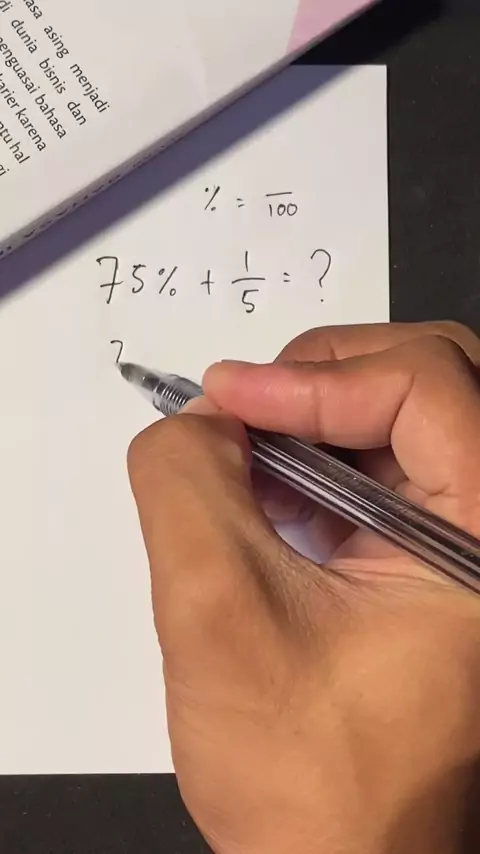 asa asing menjadi
di dunia bisnis dan
enguasai bahasa
arier karena
ntu hal
gi
% = /100
75% + 1/5 = ?
7